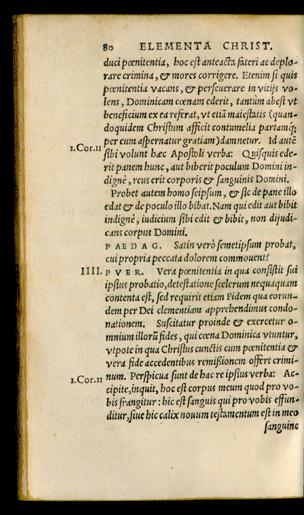 80 ELEMENTA CHRIST.
duci pœnitentia, hoc est anteacta fateri ac deplo-
rare crimina, & mores corrigere. Etenim si quis
pœnitentia vacans, & perseuerare in vitijs vo-
lens, Dominicam cœnam ederit, tantum abest vt
beneficium ex ea referat, vt etiā maiestatis (quan-
doquidem Christum afficit contumelia partamq;
per eum aspernatur gratiam) damnetur. Id autē
1.Cor.11 sibi volunt hæc Apostoli verba: Quisquis ede-
rit panem hunc, aut biberit poculum Domini in-
dignè, reus erit corporis & sanguinis Domini.
Probet autem homo seipsum, & sic de pane illo
edat & de poculo illo bibat. Nam qui edit aut bibit
indignè, iudicium sibi edit & bibit, non dijudi-
cans corpus Domini.
PAEDAG. Satin verò semetipsum probat,
cui propria peccata dolorem commouent?
IIII. PVER. Vera pœnitentia in qua consistit sui
ipsius probatio, detestatione scelerum nequaquam
contenta est, sed requirit etiam Fidem qua eorun-
dem per Dei clementiam apprehendimus condo-
nationem. Suscitatur proinde & exercetur o-
mnium illorū fides, qui cœna Dominica vtuntur,
vtpote in qua Christus cunctis cum pœnitentia &
vera fide accedentibus remißionem offert crimi-
1.Cor.11 num. Perspicua sunt de hac re ipsius verba: Ac-
cipite, inquit, hoc est corpus meum quod pro vo-
bis frangitur: hic est sanguis qui pro vobis effun-
ditur, siue hic calix nouum testamentum est in meo
sanguine